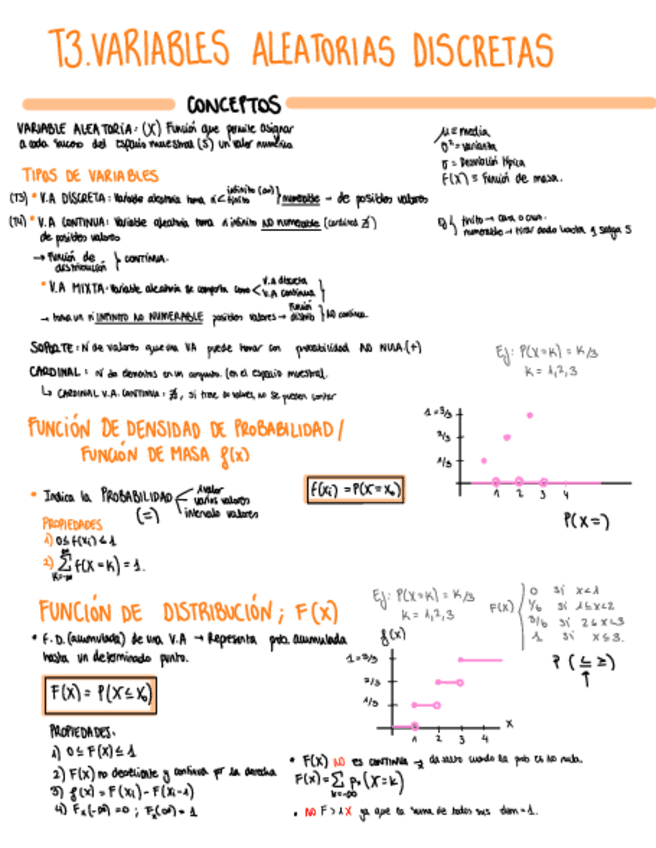 T3.VARIABLES ALEATORIAS DISCRETAS
CONCEPTOS
VARIABLE ALEATORIA: (X) Función que permite asignar
a cada suceso del espacio muestral (S) un valor numérico
μ ≡ media
σ² = varianza
σ = Desviación típica
F(X) ≡ Función de masa.
TIPOS DE VARIABLES
(T3) • V.A DISCRETA: Variable aleatoria toma nº < infinito (∞) finito } numerable - de posibles valores
(T4) • V.A CONTINUA: Variable aleatoria toma nº infinito NO numerable (cardinal ∄)
de posibles valores
finito → cara o cruz.
numerable → tirar dado hasta q salga 5
→ Función de distribución } CONTINUA.
• V.A MIXTA: Variable aleatoria se comporta como < V.a discreta V.a continua }
→ toma un nº INFINITO NO NUMERABLE posibles valores → Función distrib } NO continua.
SOPORTE: Nº de valores que una VA puede tomar con probabilidad NO NULA.(+)
CARDINAL: Nº de elementos en un conjunto. (en el espacio muestral)
↳ CARDINAL V.A. CONTINUA: ∄, si tiene ∞ valores, no se pueden contar
Ej: P(X=K) = K/3
K = 1,2,3
FUNCIÓN DE DENSIDAD DE PROBABILIDAD /
FUNCIÓN DE MASA f(x)
1=3/3
2/3
1/3
1 2 3 4
P(X=)
• Indica la PROBABILIDAD (=) < 1 valor
varios valores
intervalo valores
f(xi) = P(X=xo)
PROPIEDADES
1) 0≤ f(xi) ≤ 1
2) ∞ Σ K=-∞ f(X=K) = 1.
FUNCIÓN DE DISTRIBUCIÓN; F(X)
Ej: P(X=K) = K/3
K = 1,2,3
F(X) { 0 si x<1
1/6 si 1≤x<2
3/6 si 2≤x<3
1 si x≤3.
P (≤ ≥)
↑
• F.D. (acumulada) de una V.A → Representa prob. acumulada
hasta un determinado punto.
F(X) = P(X≤xo)
f(x)
1=3/3
2/3
1/3
1 2 3 4 X
PROPIEDADES.
1) 0≤ F(X) ≤ 1
2) F(X) no decreciente y continua por la derecha
3) f(x) = F(xi) - F(xi-1)
4) Fx(-∞) = 0 ; Fx(∞) = 1
• F(X) NO es CONTINUA → da salto cuando la prob es no nula.
F(X) = Σ K=-∞ P(X=K)
• NO F>1X ya que la suma de todos sus =1.